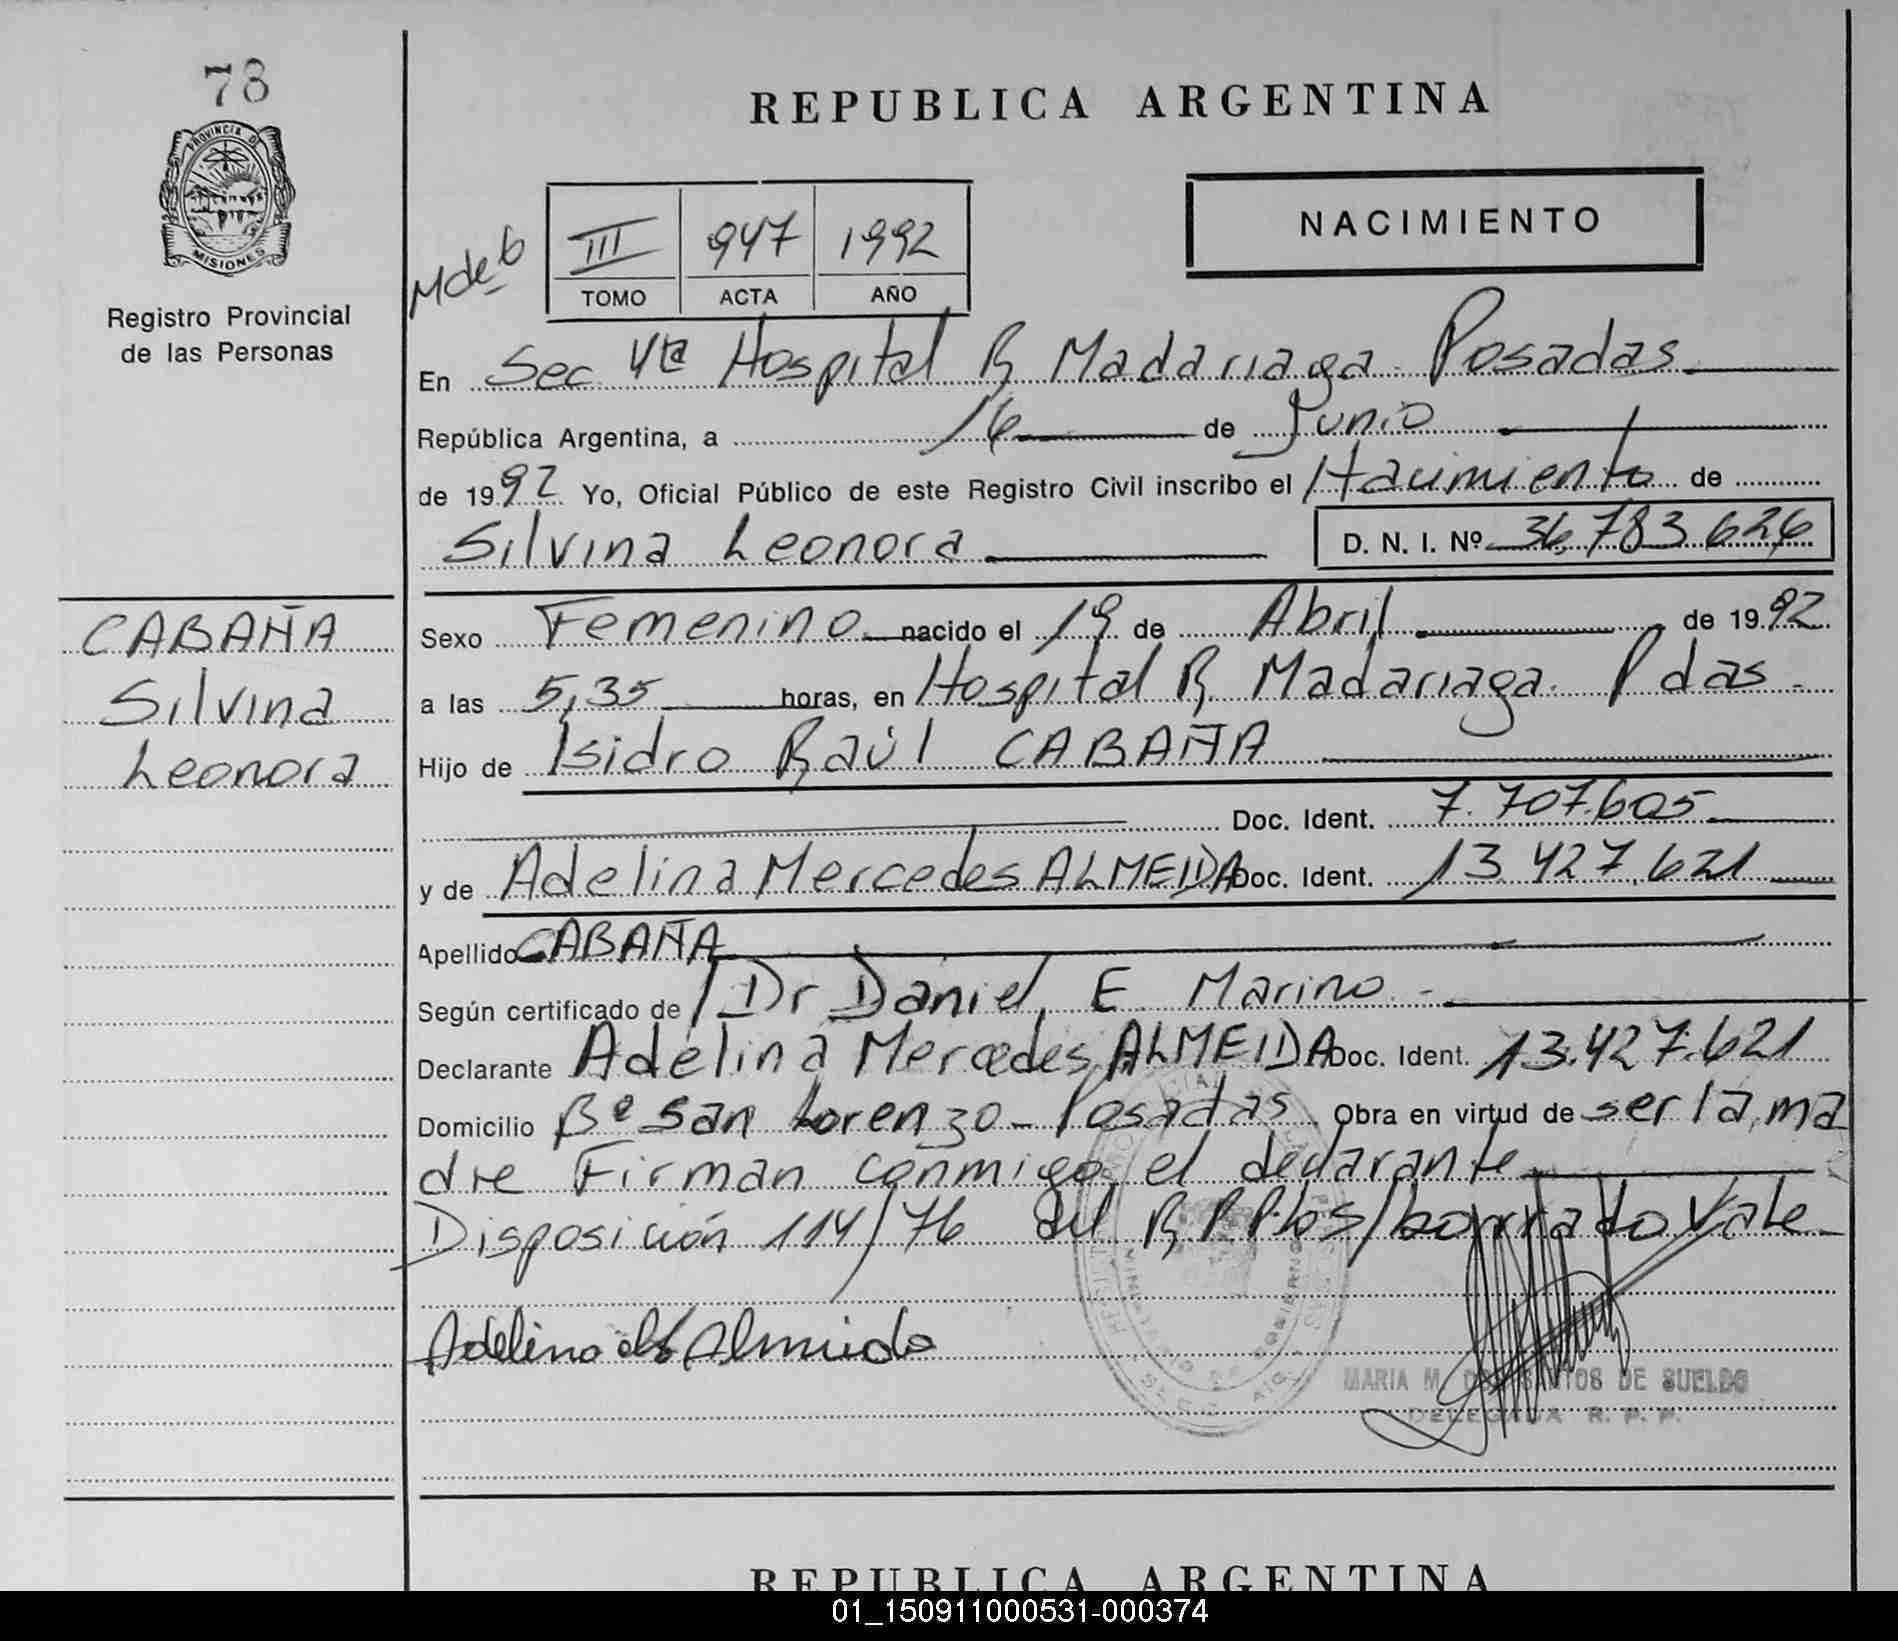 78
PROVINCIA DE
MISIONES
Registro Provincial
de las Personas
REPUBLICA ARGENTINA
NACIMIENTO
III 947 1992
TOMO ACTA AÑO
En Sec Vta Hospital R Madariaga Posadas
República Argentina, a 16 de Junio
de 1992 Yo, Oficial Público de este Registro Civil inscribo el Nacimiento de
Silvina Leonora D. N. I. Nº 36.783.626
CABAÑA
Silvina
Leonora
Sexo Femenino nacido el 19 de Abril de 1992
a las 5,35 horas, en Hospital R. Madariaga. Pdas.
Hijo de Isidro Raúl CABAÑA
Doc. Ident. 7.707.605
y de Adelina Mercedes ALMEIDA Doc. Ident. 13.427.621
Apellido CABAÑA
Según certificado de Dr Daniel E. Marino.-
Declarante Adelina Mercedes ALMEIDA Doc. Ident. 13.427.621
Domicilio Bº San Lorenzo - Posadas Obra en virtud de ser la ma
dre Firman conmigo el declarante
Disposición 114/76 del R.P.P. los s/borrado Vale
Adelina de Almeida
MARIA M. DOS SANTOS DE SUELDO
DELEGADA R. P. P.
REPUBLICA ARGENTINA
01_150911000531-000374